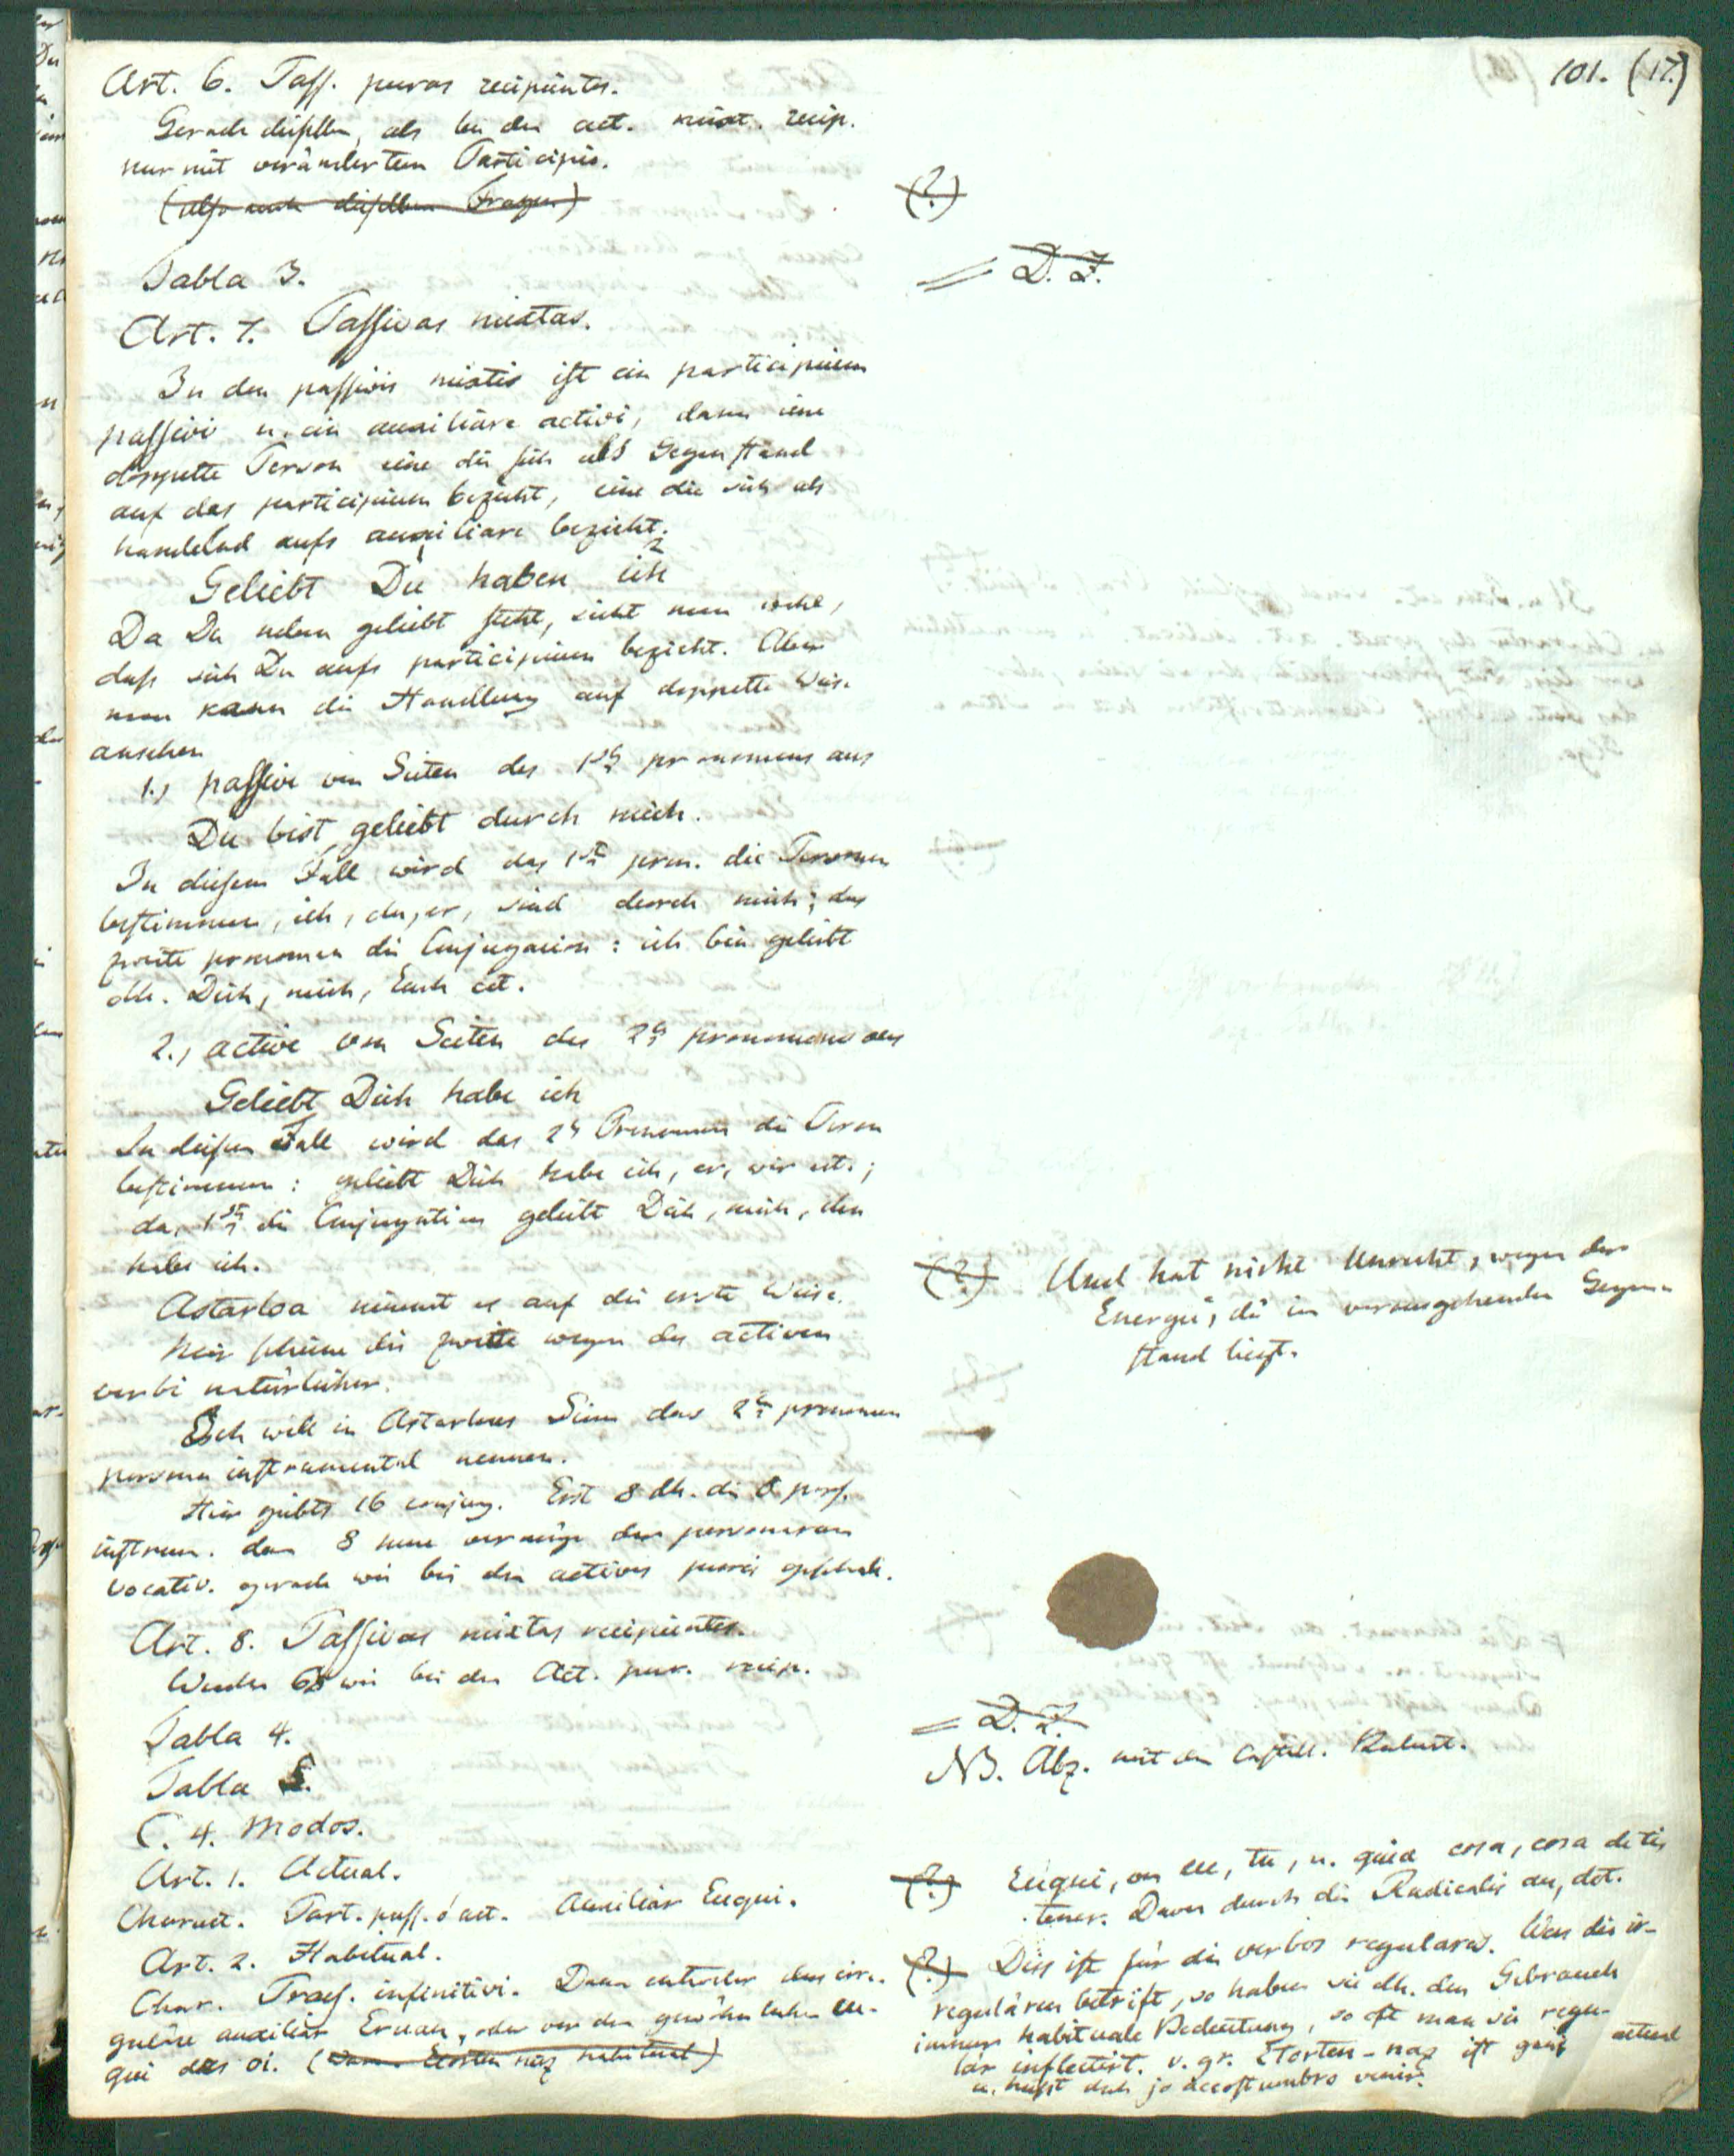 101. (17.)
Art. 6. Pass. puras recipientes.
Gerade dieselben, als bei den act. mixt. recip.
nur mit verändertem Participio.
(also auch dieselben Fragen)
(?.)
Tabla 3.
= D. Z.
Art. 7. Passivas mixtas.
In den passivis mixtis ist ein participium
passivi u. ein auxiliare activi, dann eine
doppelte Person eine die sich als Gegenstand
auf das participium bezieht, eine die sich als
handelnd aufs auxiliare bezieht.
1 2
Geliebt Du haben ich
Da Du neben geliebt steht, sieht man wohl,
dass sich Du aufs participium bezieht. Aber
man kann die Handlung auf doppelte Weise
ansehen
1., passive von Seiten des 1sten pronomens aus
Du bist geliebt durch mich.
In diesem Fall wird das 1ste pron. die Personen
bestimmen, ich, du, er, sind durch mich; das
zweite pronomen die Conjugation: ich bin geliebt
dh. Dich, mich, Euch cet.
2., active von Seiten des 2n pronomens aus
Geliebt Dich habe ich
In diesem Fall wird das 2e Pronomen die Person
bestimmen: geliebt Dich habe ich, er, wir cet.;
das 1ste die Conjugation geliebt Dich, mich, den
habe ich.
Astarloa nimmt es auf die erste Weise.
Mir scheint die zweite wegen des activen
verbi natürlicher.
(?.) Und hat nicht Unrecht, wegen der
Energie, die im vorausgehenden Gegen-
stand liegt.
Ich will in Astarloas Sinn das 2te pronomen
persona instrumental nennen.
Hier giebts 16 conjug. Erst 8 dh. die 8 pers.
instrum. dann 8 neue vermöge der personarum
vocativ. gerade wie bei den activis puris geschah.
Art. 8. Passivas mixtas recipientes.
Wieder 68 wie bei den Act. pur. recip.
Tabla 4.
= D. Z.
Tabla 5.
NB. Abz. mit den Castill. Rubric.
C. 4. Modos.
Art. 1. Actual.
Charact. Part. pass. ó act. Auxiliar Eugui.
(?.) Eugui, von eu, tu, u. guia cosa, cosa de ti,
tener. Davon durch die Radicalis au, det.
Art. 2. Habitual.
Char. Praes. infinitivi. Dann entweder das irre-
guläre auxiliar Eruan, oder vor den gewöhnlichen eu-
gui das oi. (Etorten naz habitual)
(?.) Diss ist für die verbos regulares. Was die ir-
regulären betrift, so haben sie dh. den Gebrauch
immer habituale Bedeutung, so oft man sie regu-
lär inflectirt. v. gr. Etorten-naz ist ganz actual
u. heisst doch jo accostumbro venir.